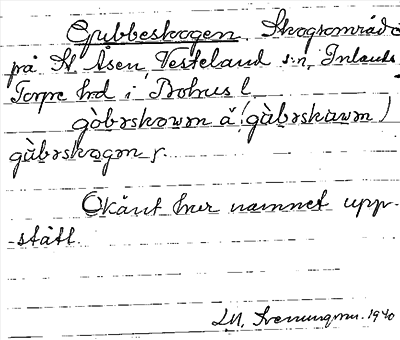 Gubbeskogen Skogsområde
på St. Åsen, Vesteland s:n, Inlands
Torpe hrd i Bohus l.
gòbəskowən ä (gùbəskuwən)
gùbəskogən r.
Okänt hur namnet upp-
-stått.
1940